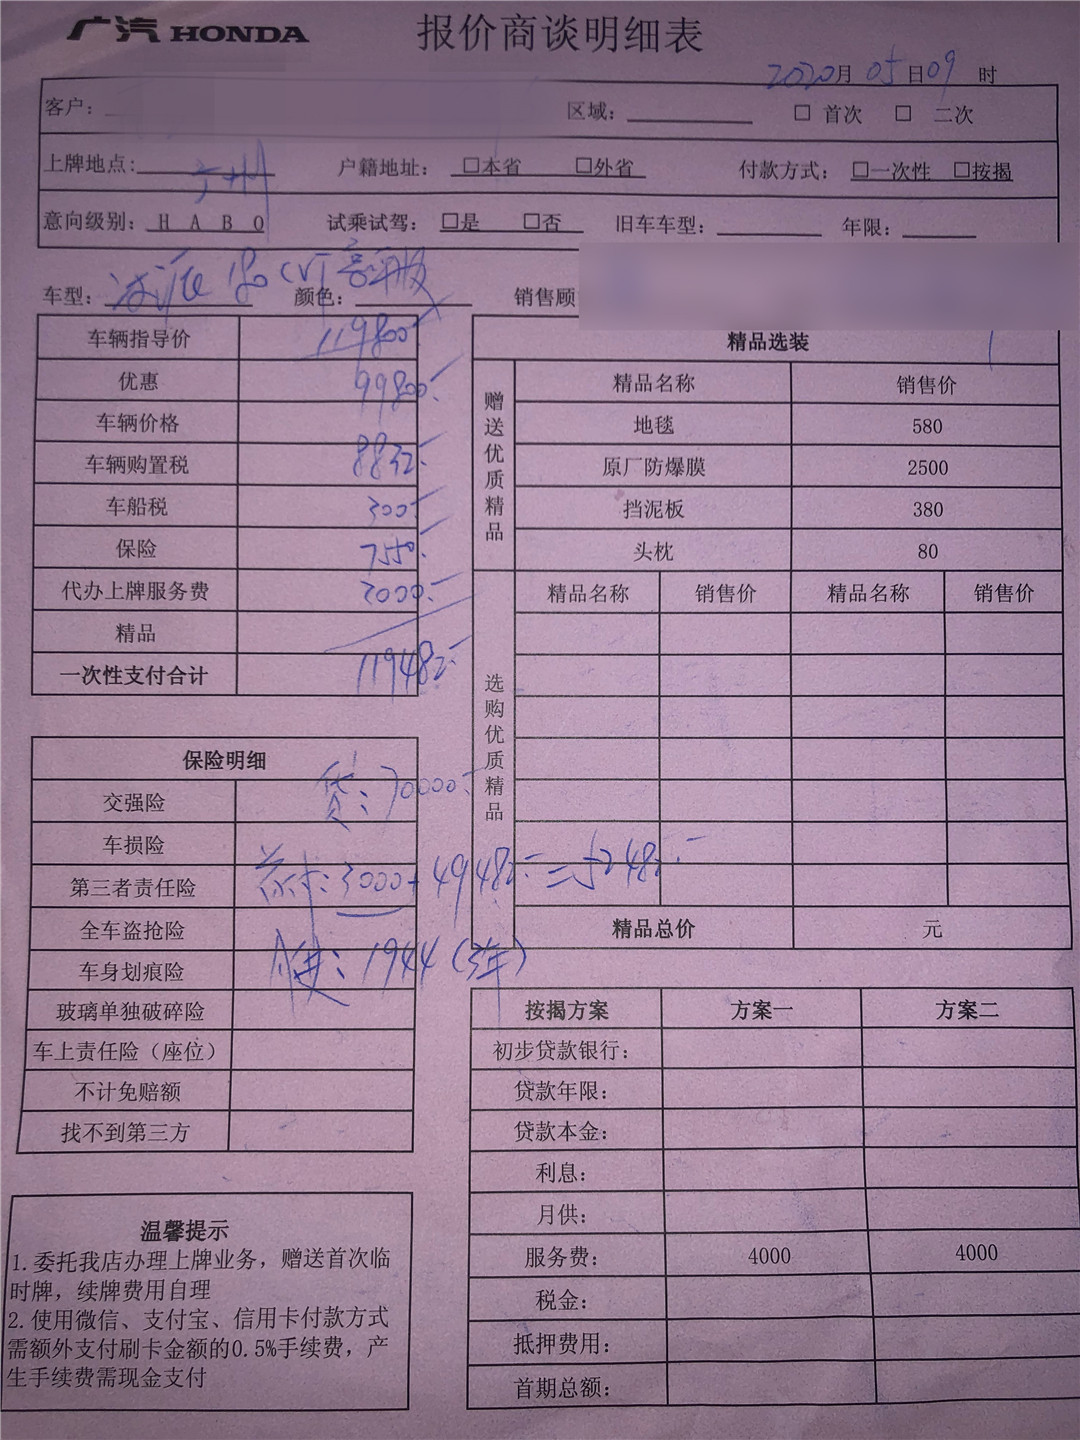 广汽 HONDA 报价商谈明细表
2020月05日09时
客户： 区域： □ 首次 □ 二次
上牌地点：广州 户籍地址： □本省 □外省 付款方式： □一次性 □按揭
意向级别： H A B O 试乘试驾： □是 □否 旧车车型： 年限：
车型：凌派180CVT豪华版 颜色： 销售顾
车辆指导价 119800
优惠 99800
车辆价格
车辆购置税 8832
车船税 300
保险 7550
代办上牌服务费 3000
精品
一次性支付合计 119482
精品选装
赠送优质精品
精品名称 销售价
地毯 580
原厂防爆膜 2500
挡泥板 380
头枕 80
选购优质精品
精品名称 销售价 精品名称 销售价
精品总价 元
保险明细
交强险
车损险
第三者责任险
全车盗抢险
车身划痕险
玻璃单独破碎险
车上责任险（座位）
不计免赔额
找不到第三方
贷：70000
首付：3000+49482=52482
月供：1944（3年）
按揭方案 方案一 方案二
初步贷款银行：
贷款年限：
贷款本金：
利息：
月供：
服务费： 4000 4000
税金：
抵押费用：
首期总额：
温馨提示
1.委托我店办理上牌业务，赠送首次临
时牌，续牌费用自理
2.使用微信、支付宝、信用卡付款方式
需额外支付刷卡金额的0.5%手续费，产
生手续费需现金支付